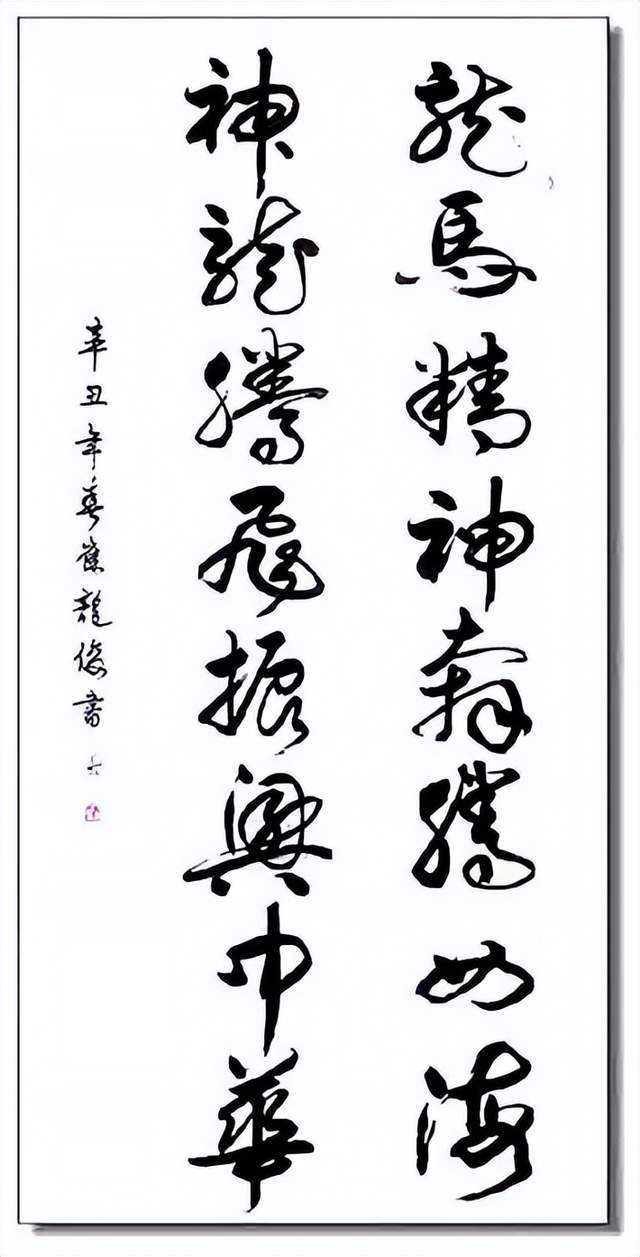 龍馬精神奔騰如海
神龍騰飛振興中華
辛丑年春崔龍俊書